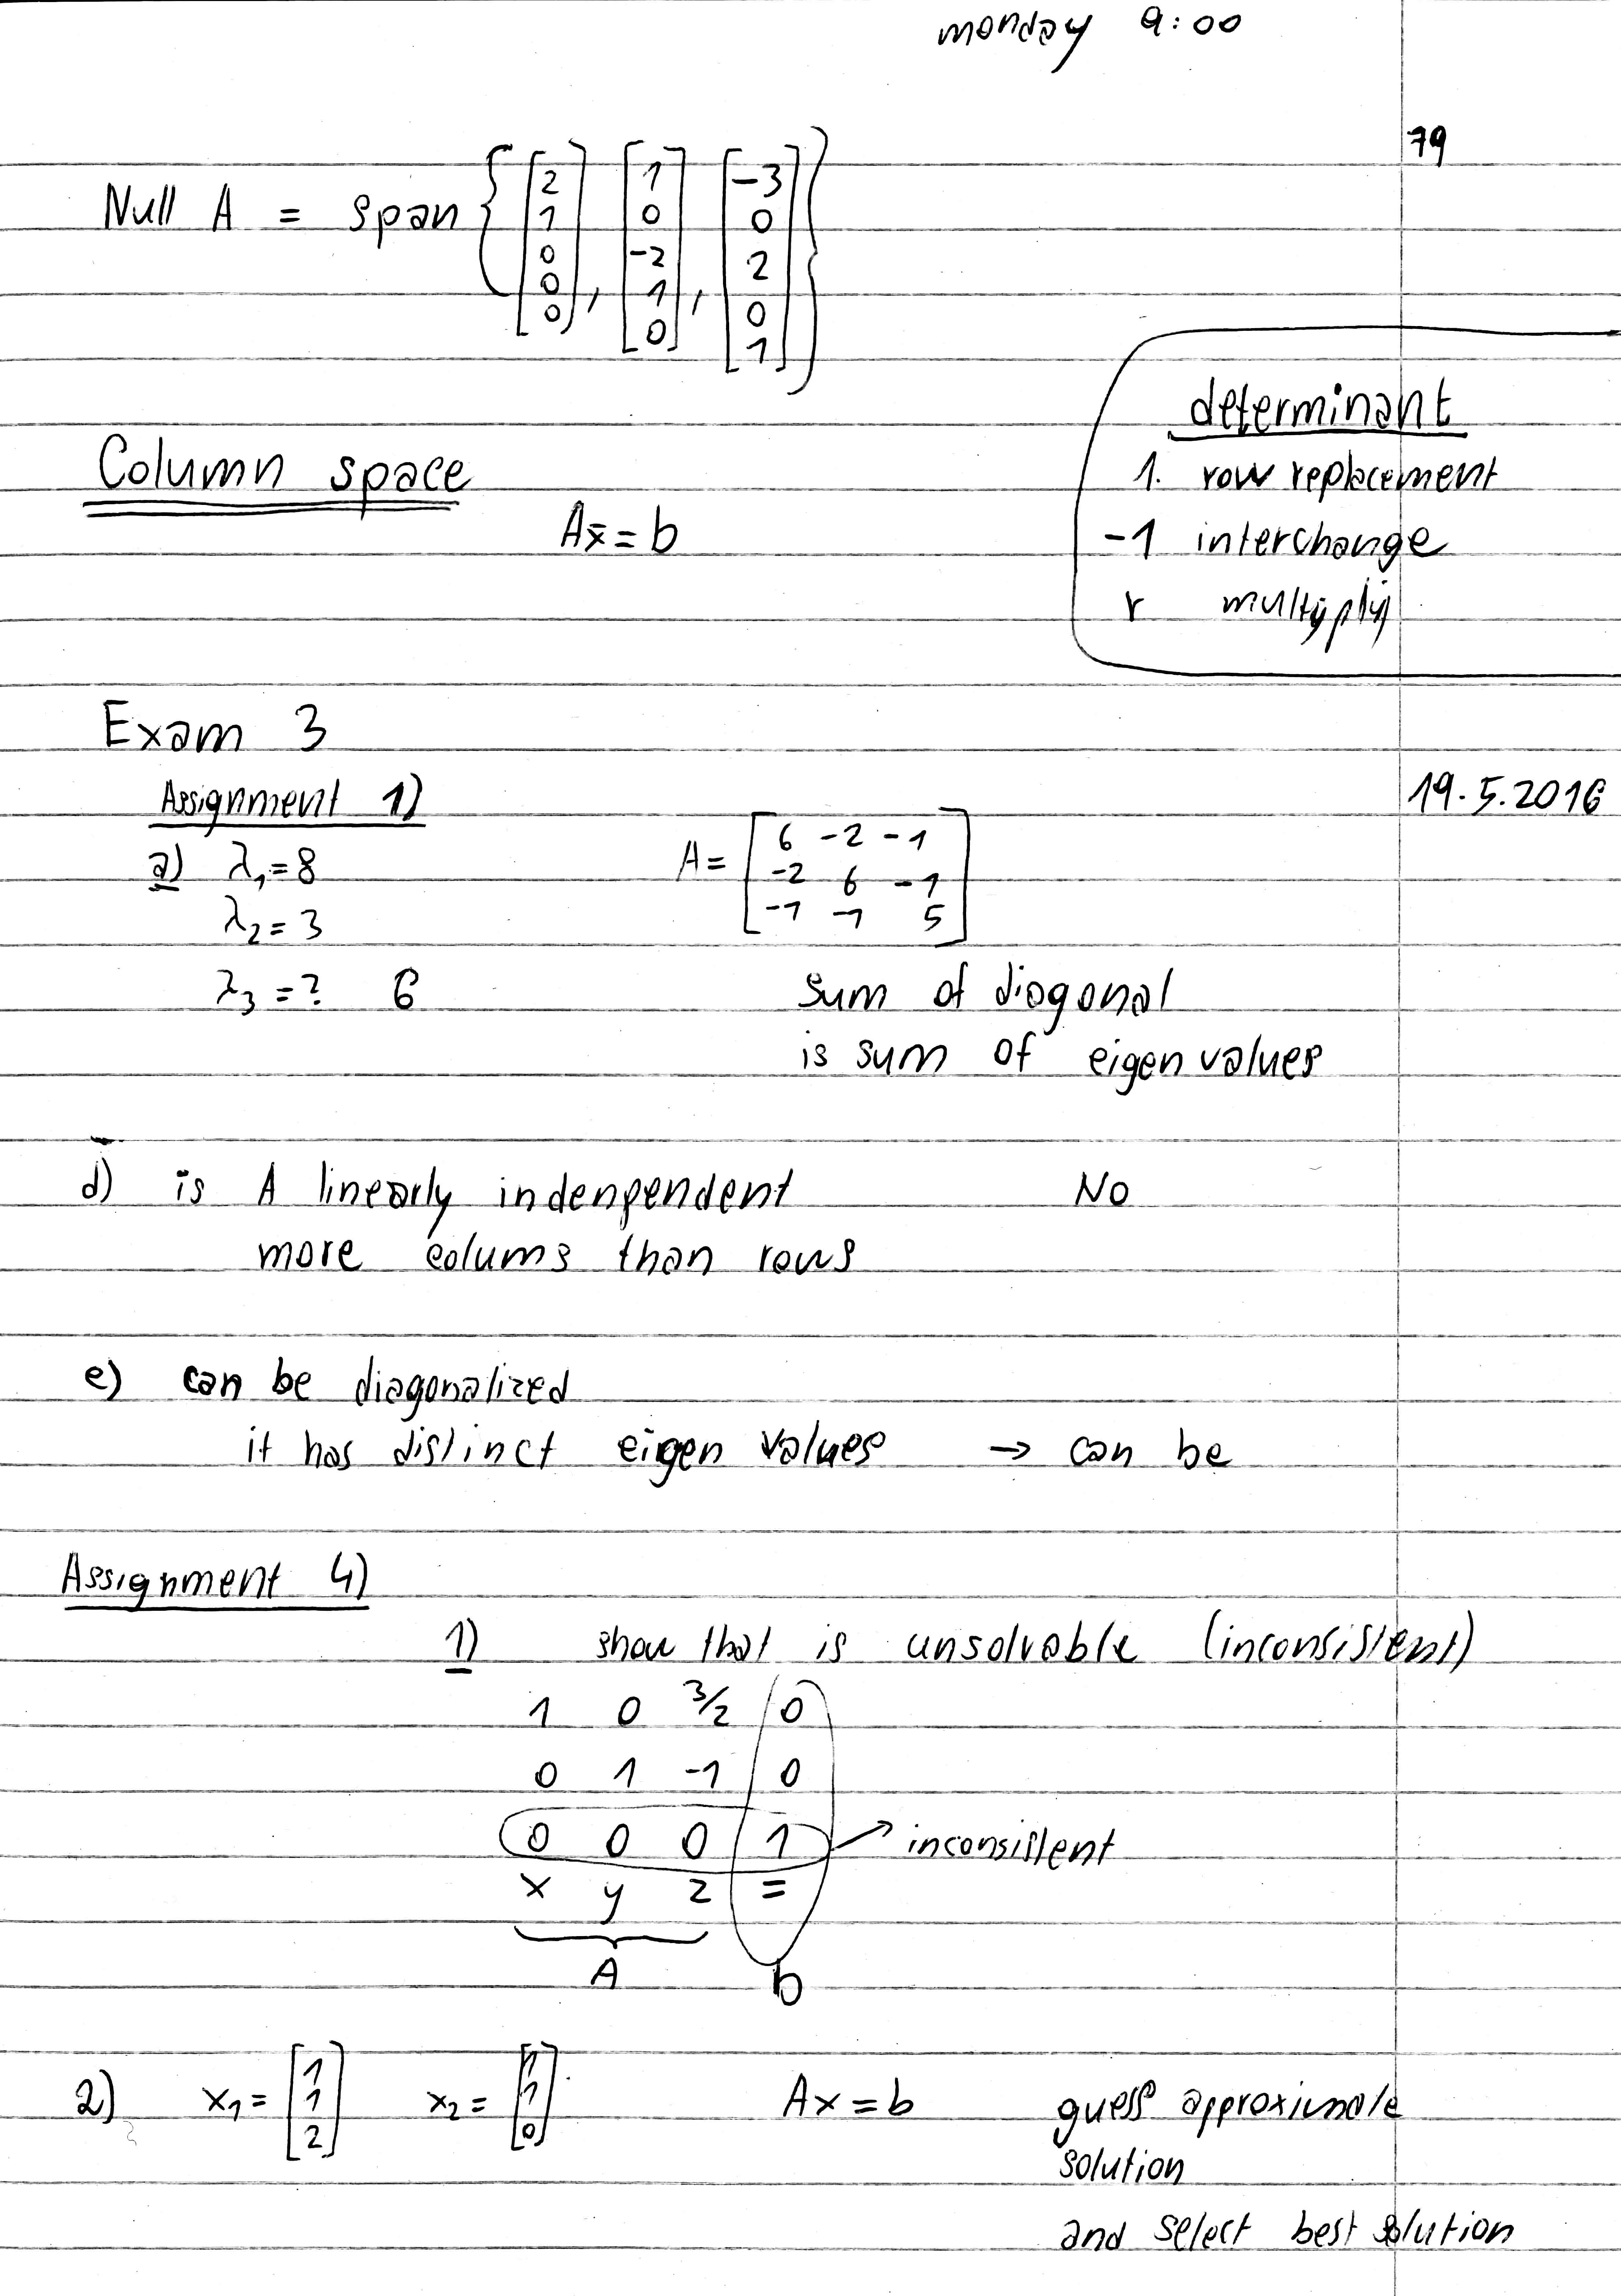 monday 9:00
79
Null A = span { [2 1 0 0 0], [1 0 -2 1 0], [-3 0 2 0 1] }
determinant
1. row replacement
-1 interchange
r multyply
Column space
Ax̄ = b
Exam 3
19.5.2016
Assignment 1)
a) λ₁=8
λ₂=3
λ₃=? 6
A = [
6 -2 -1
-2 6 -1
-1 -1 5
]
sum of diagonal
is sum of eigen values
d) is A linearly indenpendent No
more colums than rows
e) can be diagonalized
it has distinct eigen values → can be
Assignment 4)
1) show that is unsolvable (inconsistent)
1 0 3/2 0
0 1 -1 0
0 0 0 1 → inconsistent
x y z =
A b
2) x₁ = [1 1 2] x₂ = [1 1 0] Ax = b guess approximate
solution
and select best solution